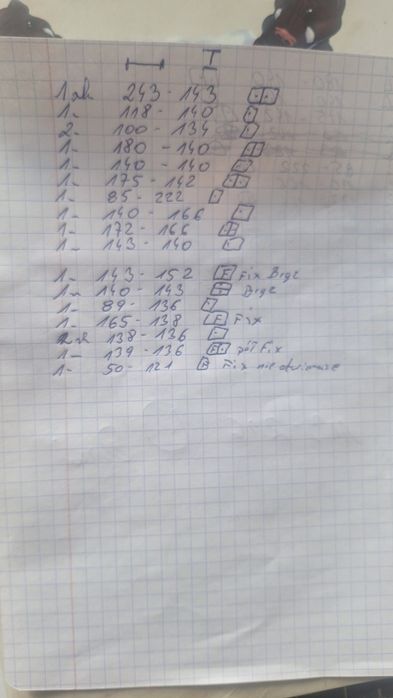 243 - 143
1 - 118 - 140
2 - 100 - 134
1 - 180 - 140
1 - 140 - 140
1 - 175 - 142
1 - 85 - 222
1 - 140 - 166
1 - 172 - 166
1 - 143 - 140
1 - 143 - 152 F Fix
1 - 140 - 143
1 - 89 - 136
1 - 165 - 138 F Fix
138 - 136
1 - 139 - 136 F pół Fix
1 - 50 - 121 F Fix nie